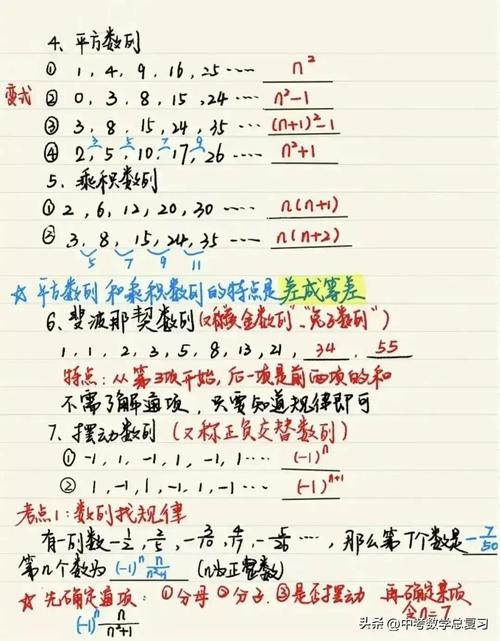 4、平方数列
① 1, 4, 9, 16, 25 ···· n²
变式 ② 0, 3, 8, 15, 24 ···· n²-1
③ 3, 8, 15, 24, 35 ···· (n+1)²-1
④ 2, 5, 10, 17, 26 ···· n²+1
3 5 7 9
5、乘积数列
① 2, 6, 12, 20, 30 ···· n(n+1)
② 3, 8, 15, 24, 35 ···· n(n+2)
5 7 9 11
☆ 平方数列和乘积数列的特点是差成等差
6、斐波那契数列(又称黄金数列"、"兔子数列")
1, 1, 2, 3, 5, 8, 13, 21, 34 . 55
特点:从第3项开始,后一项是前两项的和
不需了解通项,只要知道规律即可
7、摆动数列 (又称正负交替数列)
① -1, 1, -1, 1, -1, 1···· (-1)ⁿ
② 1, -1, 1, -1, 1, -1 ···· (-1)ⁿ⁺¹
考点1:数列找规律
有一列数 -1/2, 2/5, -3/10, 4/17, -5/26 ···, 那么第7个数是 -7/50
第n个数为 (-1)ⁿ n/n²+1 (n为正整数)
☆ 先确定通项:①分母 ②分子 ③是否摆动 再确定某项
(-1)ⁿ n/n²+1 令n=7
头条 @中考数学总复习